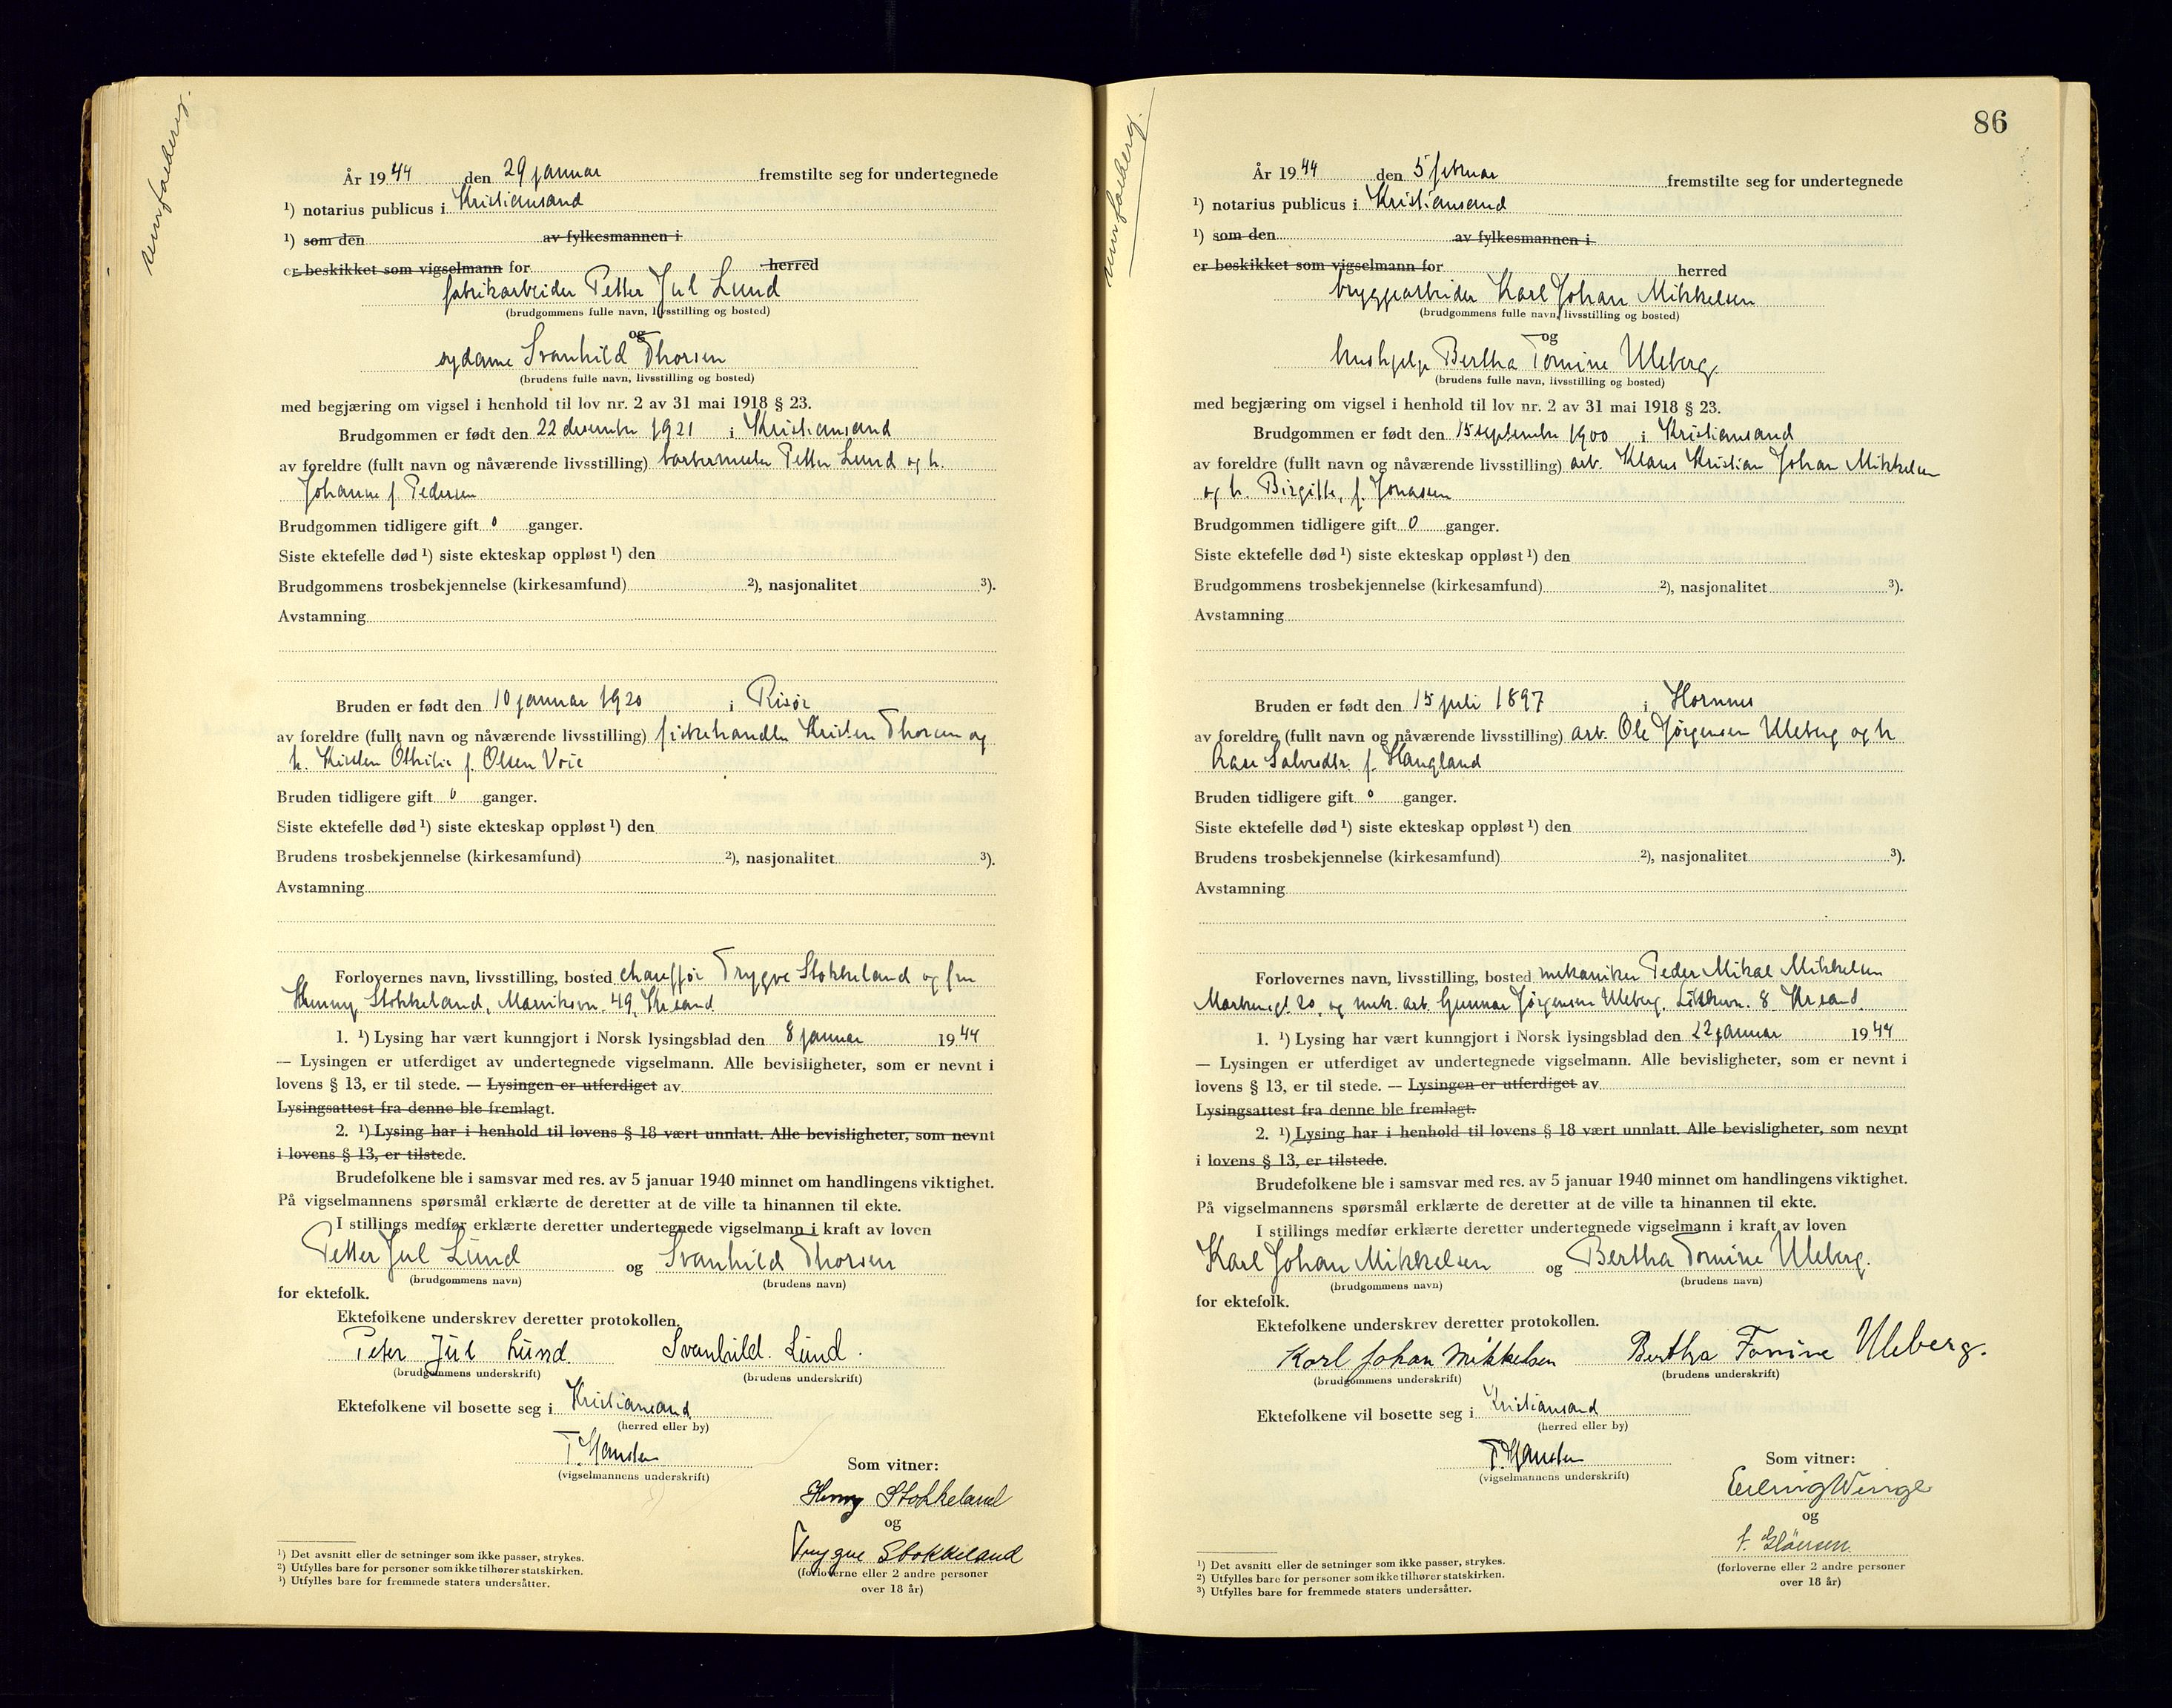 År 1944 den 29 januar fremstilte seg for undertegnede
¹) notarius publicus i Kristiansand
¹) som den av fylkesmannen i
er beskikket som vigselmann for herred
fabrikarbeider Petter Jul Lund
(brudgommens fulle navn, livsstilling og bosted)
og
sydame Svanhild Thorsen
(brudens fulle navn, livsstilling og bosted)
med begjæring om vigsel i henhold til lov nr. 2 av 31 mai 1918 § 23.
Brudgommen er født den 22 desember 1921 i Kristiansand
av foreldre (fullt navn og nåværende livsstilling) barbermester Petter Lund og h.
Johanne f. Pedersen
Brudgommen tidligere gift 0 ganger.
Siste ektefelle død ¹) siste ekteskap oppløst ¹) den
Brudgommens trosbekjennelse (kirkesamfund) ²), nasjonalitet ³).
Avstamning
Bruden er født den 10 januar 1920 i Risør
av foreldre (fullt navn og nåværende livsstilling) fiskehandler Kristen Thorsen og
h. Kirsten Othilie f. Olsen Voie
Bruden tidligere gift 0 ganger.
Siste ektefelle død ¹) siste ekteskap oppløst ¹) den
Brudens trosbekjennelse (kirkesamfund) ²), nasjonalitet ³).
Avstamning
Forlovernes navn, livsstilling, bosted chauffør Trygve Stokkeland og fru
Henny Stokkeland, 49, Kr.sand
1. ¹) Lysing har vært kunngjort i Norsk lysingsblad den 8 januar 1944
— Lysingen er utferdiget av undertegnede vigselmann. Alle bevisligheter, som er nevnt i
lovens § 13, er til stede. — Lysingen er utferdiget av
Lysingsattest fra denne ble fremlagt.
2. ¹) Lysing har i henhold til lovens § 18 vært unnlatt. Alle bevisligheter, som nevnt
i lovens § 13, er tilstede.
Brudefolkene ble i samsvar med res. av 5 januar 1940 minnet om handlingens viktighet.
På vigselmannens spørsmål erklærte de deretter at de ville ta hinannen til ekte.
I stillings medfør erklærte deretter undertegnede vigselmann i kraft av loven
Petter Jul Lund og Svanhild Thorsen
(brudgommens navn) (brudens navn)
for ektefolk.
Ektefolkene underskrev deretter protokollen.
Peter Jul Lund. Svanhild. Lund.
(brudgommens underskrift) (brudens underskrift)
Ektefolkene vil bosette seg i Kristiansand
(herred eller by)
T. Hansten
(vigselmannens underskrift)
Som vitner:
Henny Stokkeland
og
Trygve Stokkeland
(forloverne eller 2 andre personer
over 18 år)
¹) Det avsnitt eller de setninger som ikke passer, strykes.
²) Utfylles bare for personer som ikke tilhører statskirken.
³) Utfylles bare for fremmede staters undersåtter.
86
År 1944 den 5 februar fremstilte seg for undertegnede
¹) notarius publicus i Kristiansand
¹) som den av fylkesmannen i
er beskikket som vigselmann for herred
bryggearbeider Karl Johan Mikkelsen
(brudgommens fulle navn, livsstilling og bosted)
og
hushjelp Bertha Tomine Uleberg
(brudens fulle navn, livsstilling og bosted)
med begjæring om vigsel i henhold til lov nr. 2 av 31 mai 1918 § 23.
Brudgommen er født den 15 september 1900 i Kristiansand
av foreldre (fullt navn og nåværende livsstilling) arb. Klaus Kristian Johan Mikkelsen
og h. Birgitte, f. Jonassen
Brudgommen tidligere gift 0 ganger.
Siste ektefelle død ¹) siste ekteskap oppløst ¹) den
Brudgommens trosbekjennelse (kirkesamfund) ²), nasjonalitet ³).
Avstamning
Bruden er født den 15 juli 1897 i Hornnes
av foreldre (fullt navn og nåværende livsstilling) arb. Ole Jørgensen Uleberg og h
Aase Salvesdtr. f. Haugland
Bruden tidligere gift 0 ganger.
Siste ektefelle død ¹) siste ekteskap oppløst ¹) den
Brudens trosbekjennelse (kirkesamfund) ²), nasjonalitet ³).
Avstamning
Forlovernes navn, livsstilling, bosted mekaniker Peder Mikal Mikkelsen
Markensgt. 20, og mek. arb. Gunnar Jørgensen Uleberg, 8 Kr.sand
1. ¹) Lysing har vært kunngjort i Norsk lysingsblad den 22 januar 1944
— Lysingen er utferdiget av undertegnede vigselmann. Alle bevisligheter, som er nevnt i
lovens § 13, er til stede. — Lysingen er utferdiget av
Lysingsattest fra denne ble fremlagt.
2. ¹) Lysing har i henhold til lovens § 18 vært unnlatt. Alle bevisligheter, som nevnt
i lovens § 13, er tilstede.
Brudefolkene ble i samsvar med res. av 5 januar 1940 minnet om handlingens viktighet.
På vigselmannens spørsmål erklærte de deretter at de ville ta hinannen til ekte.
I stillings medfør erklærte deretter undertegnede vigselmann i kraft av loven
Karl Johan Mikkelsen og Bertha Tomine Uleberg.
(brudgommens navn) (brudens navn)
for ektefolk.
Ektefolkene underskrev deretter protokollen.
Karl Johan Mikkelsen Bertha Tomine Uleberg.
(brudgommens underskrift) (brudens underskrift)
Ektefolkene vil bosette seg i Kristiansand
(herred eller by)
T. Hansten
(vigselmannens underskrift)
Som vitner:
Winge
og
(forloverne eller 2 andre personer
over 18 år)
¹) Det avsnitt eller de setninger som ikke passer, strykes.
²) Utfylles bare for personer som ikke tilhører statskirken.
³) Utfylles bare for fremmede staters undersåtter.